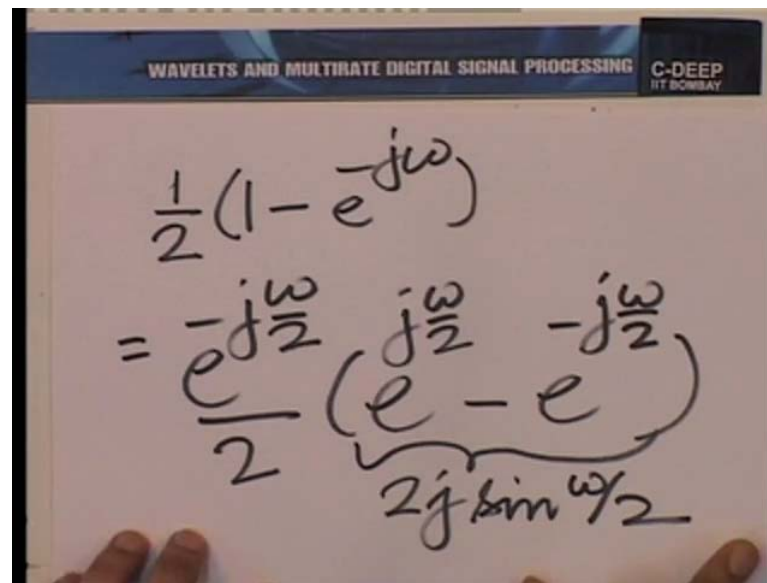 WAVELETS AND MULTIRATE DIGITAL SIGNAL PROCESSING
C-DEEP
IIT BOMBAY
½(1 - e^{-jω})
= e^{-jω/2}/2 (e^{jω/2} - e^{-jω/2})
2j sin ω/2